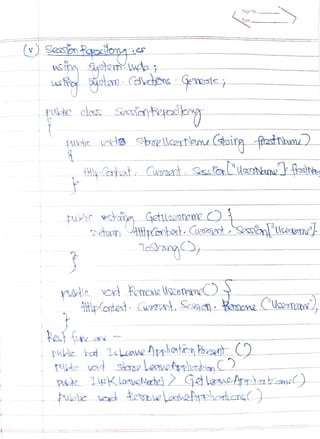 Page No.
Date
(v) Session Repository.cs
using System.Web;
using System.Collections.Generic;
public class SessionRepository
{
public void StoreUserName (string firstName)
{
HttpContext.Current.Session["UserName"] = firstName
}
public string GetUsername () {
return HttpContext.Current.Session["Username"].
ToString();
}
public void RemoveUsername() {
HttpContext.Current.Session.Remove ("Username");
}
Rest func are —
public bool IsLeaveApplicationPresent ()
public void StoreLeaveApplication ()
public List<LeaveModel> GetLeaveApplications()
public void RemoveLeaveApplications()